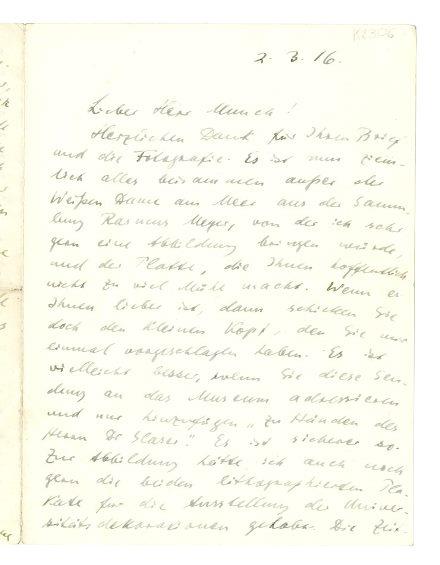 K2306
2. 3. 16.
Lieber Herr Munch!
Herzlichen Dank für Ihren Brief
und die Fotografie. Es ist nun ziem-
lich alles beisammen außer der
Weißen Dame am Meer aus der Samm-
lung Rasmus Meyer, von der ich sehr
gern eine Abbildung bringen würde,
und der Platte, die Ihnen hoffentlich
nicht zu viel Mühe macht. Wenn es
Ihnen lieber ist, dann schicken Sie
doch den kleinen Kopf, den Sie mir
einmal vorgeschlagen haben. Es ist
vielleicht besser, wenn Sie diese Sen-
dung an das Museum adressieren
und nur hinzufügen „zu Händen des
Herrn Dr Glaser." Es ist sicherer so.
Zur Abbildung hätte ich auch noch
gern die beiden lithographierten Pla-
kate für die Ausstellung der Univer-
sitätsdekorationen gehabt. Die